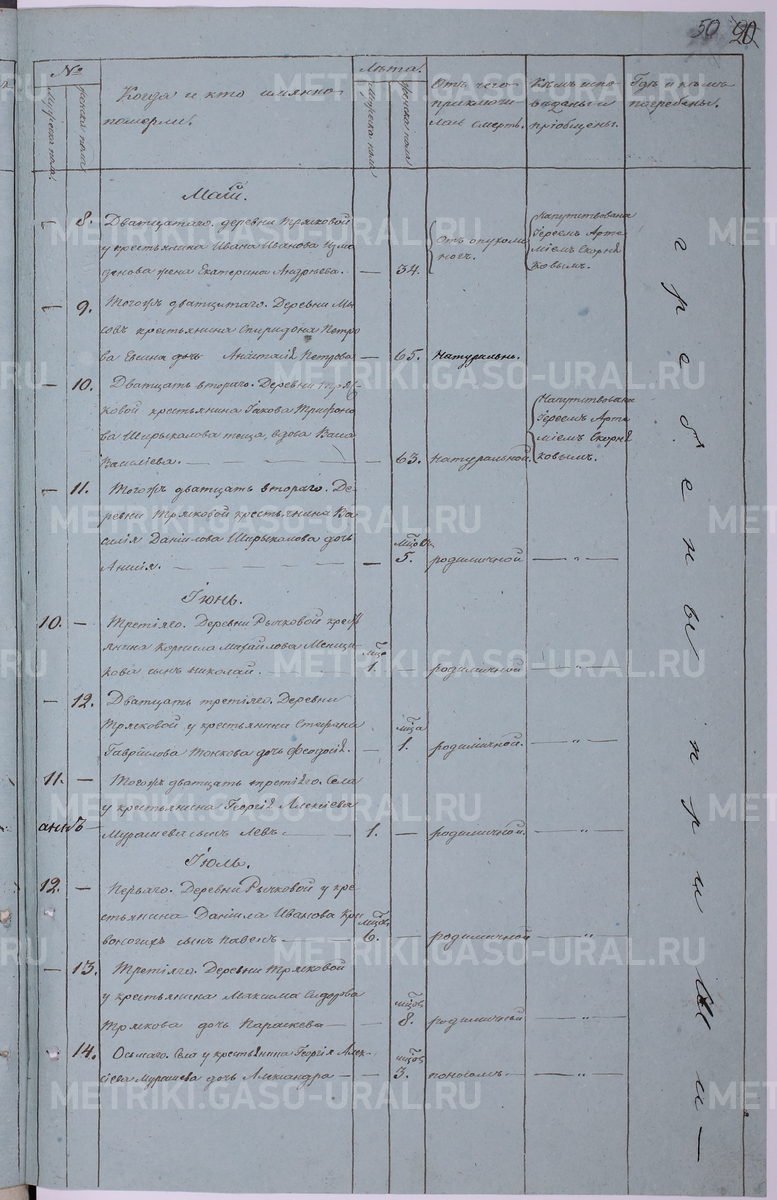 50 20
№
мужеска пола.
женска пола.
Когда и кто имянно
померли.
Лѣта.
мужеска пола
женска пола
Отъ чего
приключи
лась смерть.
Кѣмъ испо
вѣданы и
пріобщены.
Гдѣ и кѣмъ
погребены.
Маій.
8. Дватцатаго. деревни Тряковой
у крестьянина Ивана Иванова
жена Екатерина Андрѣева. — 34.
Отъ опухоли
ногъ.
Напутствована
Іереемъ Арте
міемъ Скорня
ковымъ.
9. Тогожъ дватцатаго. Деревни
крестьянина Спиридона Петро
ва дочь Анастасія Петрова — 65. Натуральн.
— 10. Дватцать втораго. Деревни Тря
ковой крестьянина Іакова Трифоно
ва Ширыкалова теща, вдова
Василіева. — 63. Натуральной.
Напутствована
Іереемъ Арте
міемъ Скорня
ковымъ.
11. Тогожъ дватцать втораго. Де
ревни Тряковой крестьянина Ва
силія Даніилова Ширыкалова дочь
— мѣсцовъ 5. родимичной — „ —
Іюнь.
10. — Третіяго. Деревни Рычковой кресть
янина Корнила Михайлова
сынъ Николай. мѣсца 1. — родимичной — „ —
— 12. Дватцать третіяго. Деревни
Тряковой у крестьянина Стефана
Гавріилова Тонкова дочь Феодосія. — мѣсца 1. родимичной. — „ —
11. — Тогожъ дватцать третіяго. Села
у крестьянина Георгія Алексіева
Мурашева сынъ Левъ. 1. — родимичной. — „ —
Іюль.
12. — Перваго. Деревни Рычковой у кре
стьянина Даніила Иванова Кри
воногихъ сынъ Павелъ — мѣсцовъ 6. — родимичной — „ —
— 13. Третіяго. Деревни Тряковой
у крестьянина Максима Сидорова
Трякова дочь Параскева — — мѣсцовъ 8. родимичной — „ —
14. Осьмаго. Села у крестьянина Георгія Алек-
сіева Мурашева дочь Александра — — мѣсцов 3. поносомъ. — „ —
METRIKI.GASO-URAL.RU